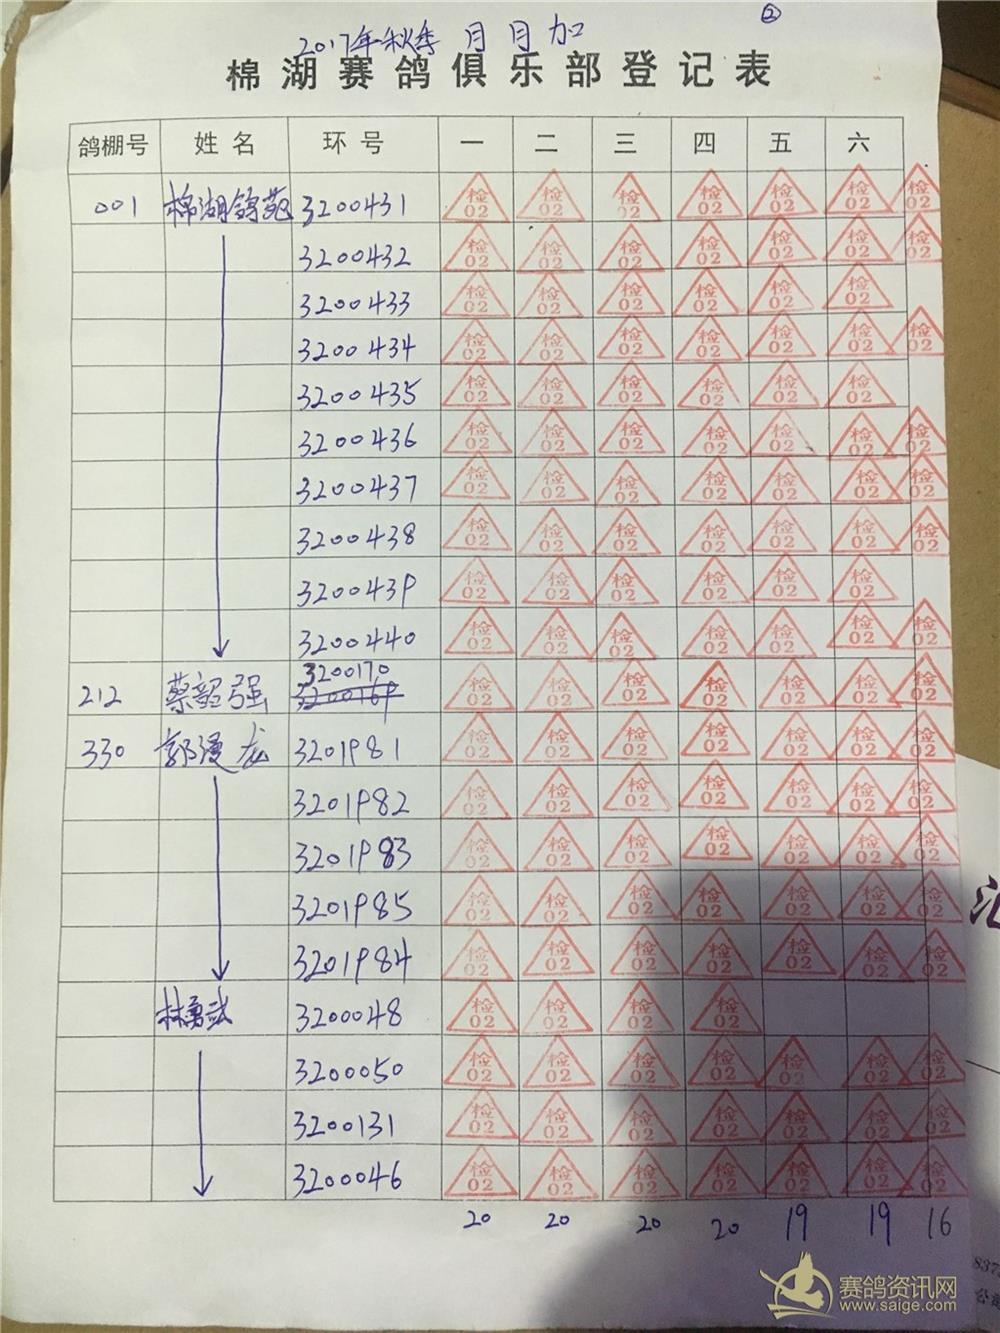 ②
2017年秋季 月月加
棉湖赛鸽俱乐部登记表
鸽棚号 姓名 环号 一 二 三 四 五 六
001 棉湖鸽苑 3200431 检02 检02 检02 检02 检02 检02 检02
3200432 检02 检02 检02 检02 检02 检02 检02
3200433 检02 检02 检02 检02 检02 检02
3200434 检02 检02 检02 检02 检02 检02 检02
3200435 检02 检02 检02 检02 检02 检02
3200436 检02 检02 检02 检02 检02 检02 检02
3200437 检02 检02 检02 检02 检02 检02 检02
3200438 检02 检02 检02 检02 检02 检02 检02
3200439 检02 检02 检02 检02 检02 检02
3200440 检02 检02 检02 检02 检02 检02 检02
3200170
212 蔡韶强 3200169 检02 检02 检02 检02 检02 检02 检02
330 郭漫龙 3201981 检02 检02 检02 检02 检02 检02 检02
3201982 检02 检02 检02 检02 检02 检02 检02
3201983 检02 检02 检02 检02 检02 检02 检02
3201985 检02 检02 检02 检02 检02 检02 检02
3201984 检02 检02 检02 检02 检02 检02 检02
林勇武 3200048 检02 检02 检02 检02
3200050 检02 检02 检02 检02 检02 检02 检02
3200131 检02 检02 检02 检02 检02 检02 检02
3200046 检02 检02 检02 检02 检02 检02 检02
20 20 20 20 19 19 16
赛鸽资讯网
www.saige.com